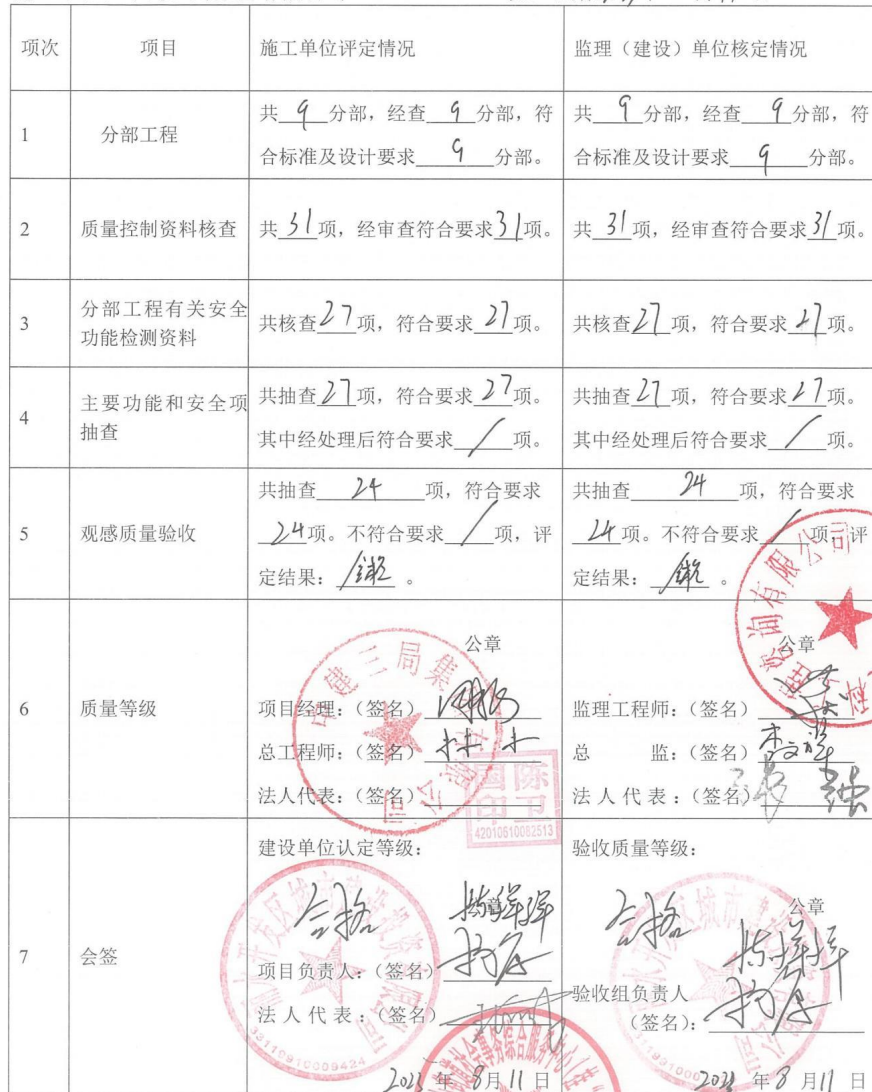 项次 项目 施工单位评定情况 监理（建设）单位核定情况
1 分部工程
共 9 分部，经查 9 分部，符
合标准及设计要求 9 分部。
共 9 分部，经查 9 分部，符
合标准及设计要求 9 分部。
2 质量控制资料核查 共 31 项，经审查符合要求 31 项。 共 31 项，经审查符合要求 31 项。
3
分部工程有关安全
功能检测资料
共核查 27 项，符合要求 27 项。 共核查 27 项，符合要求 27 项。
4
主要功能和安全项
抽查
共抽查 27 项，符合要求 27 项。
其中经处理后符合要求 / 项。
共抽查 27 项，符合要求 27 项。
其中经处理后符合要求 / 项。
5 观感质量验收
共抽查 24 项，符合要求
24 项。不符合要求 / 项，评
定结果： 。
共抽查 24 项，符合要求
24 项。不符合要求 / 项，评
定结果： 。
6 质量等级
公章
项目经理：（签名）
总工程师：（签名）
法人代表：（签名）
中建三局集
限公司
国陈
印卫
42010610082513
公章
监理工程师：（签名）
总 监：（签名）
法人代表：（签名）
咨询有限公司
7 会签
建设单位认定等级：
合格
公章
项目负责人：（签名）
法人代表：（签名）
33110910009424
2023 年 8 月 11 日
验收质量等级：
合格
公章
验收组负责人
（签名）：
2023 年 8 月 11 日